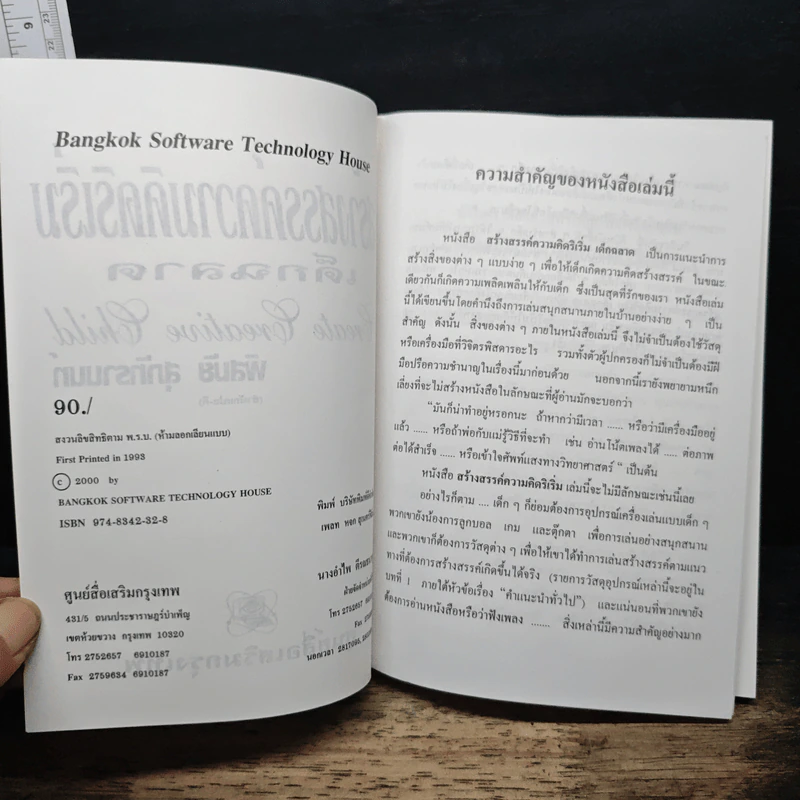 9
23
22
Bangkok Software Technology House
90./
สงวนลิขสิทธิ์ตาม พ.ร.บ. (ห้ามลอกเลียนแบบ)
First Printed in 1993
© 2000 by
BANGKOK SOFTWARE TECHNOLOGY HOUSE
ISBN 974-8342-32-8
พิมพ์ บริษัทพิมพ์ดี
เพลท หจก
ศูนย์สื่อเสริมกรุงเทพ
431/5 ถนนประชาราษฎร์บำเพ็ญ
เขตห้วยขวาง กรุงเทพ 10320
โทร 2752657 6910187
Fax 2759634 6910187
นางอำไพ
ฝ่ายจัดจำหน่าย
โทร 2752657
Fax
นอกเวลา 2817095,
ความสำคัญของหนังสือเล่มนี้
หนังสือ สร้างสรรค์ความคิดริเริ่ม เด็กฉลาด เป็นการแนะนำการ
สร้างสิ่งของต่าง ๆ แบบง่าย ๆ เพื่อให้เด็กเกิดความคิดสร้างสรรค์ ในขณะ
เดียวกันก็เกิดความเพลิดเพลินให้กับเด็ก ซึ่งเป็นสุดที่รักของเรา หนังสือเล่ม
นี้ได้เขียนขึ้นโดยคำนึงถึงการเล่นสนุกสนานภายในบ้านอย่างง่าย ๆ เป็น
สำคัญ ดังนั้น สิ่งของต่าง ๆ ภายในหนังสือเล่มนี้ จึงไม่จำเป็นต้องใช้วัสดุ
หรือเครื่องมือที่วิจิตรพิสดารอะไร รวมทั้งตัวผู้ปกครองก็ไม่จำเป็นต้องมีฝี
มือปรือความชำนาญในเรื่องนี้มาก่อนด้วย นอกจากนี้เรายังพยายามหนีก
เลี่ยงที่จะไม่สร้างหนังสือในลักษณะที่ผู้อ่านมักจะบอกว่า
"มันก็น่าทำอยู่หรอกนะ ถ้าหากว่ามีเวลา ...... หรือว่ามีเครื่องมืออยู่
แล้ว ...... หรือถ้าพ่อกับแม่รู้วิธีที่จะทำ เช่น อ่านโน้ตเพลงได้ ..... ต่อภาพ
ต่อได้สำเร็จ ..... หรือเข้าใจศัพท์แสงทางวิทยาศาสตร์ " เป็นต้น
หนังสือ สร้างสรรค์ความคิดริเริ่ม เล่มนี้จะไม่มีลักษณะเช่นนี้เลย
อย่างไรก็ตาม .... เด็ก ๆ ก็ย่อมต้องการอุปกรณ์เครื่องเล่นแบบเด็ก ๆ
พวกเขายังน้องการลูกบอล เกม และตุ๊กตา เพื่อการเล่นอย่างสนุกสนาน
และพวกเขาก็ต้องการวัสดุต่าง ๆ เพื่อให้เขาได้ทำการเล่นสร้างสรรค์ตามแนว
ทางที่ต้องการสร้างสรรค์เกิดขึ้นได้จริง (รายการวัสดุอุปกรณ์เหล่านี้จะอยู่ใน
บทที่ 1 ภายใต้หัวข้อเรื่อง "คำแนะนำทั่วไป") และแน่นอนที่พวกเขายัง
ต้องการอ่านหนังสือหรือว่าฟังเพลง ....... สิ่งเหล่านี้มีความสำคัญอย่างมาก